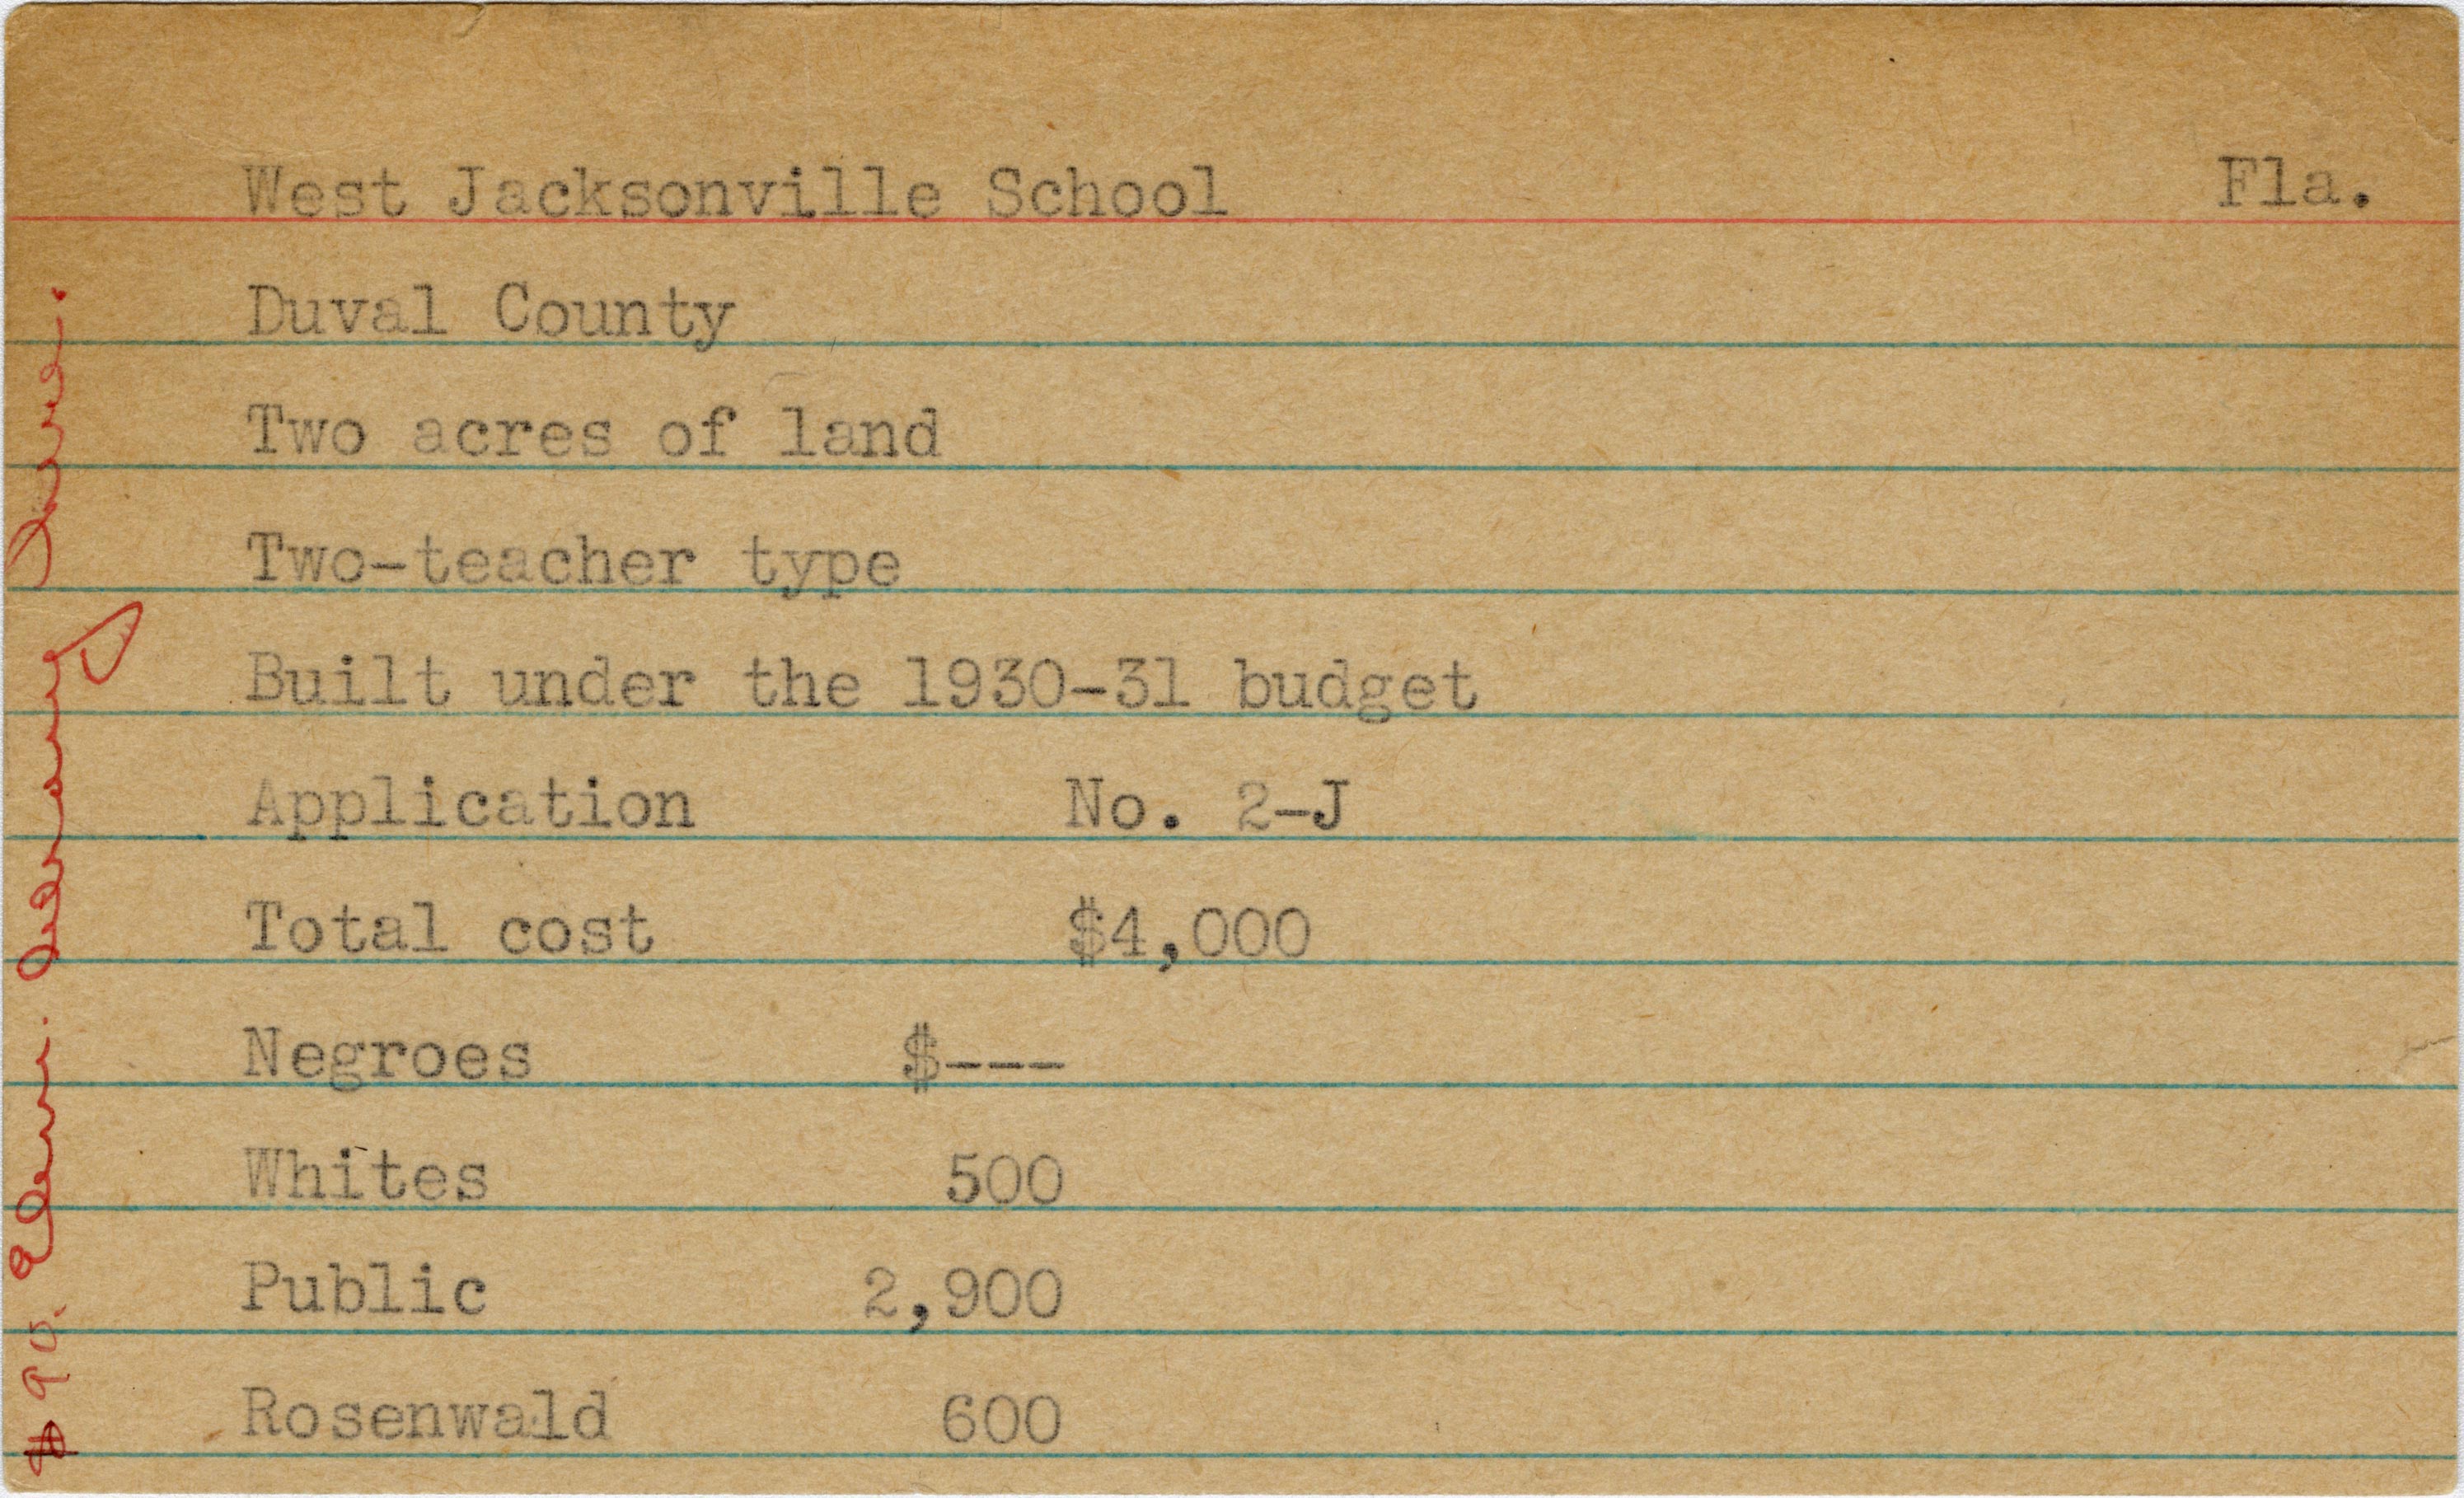 West Jacksonville School Fla.
Duval County
Two acres of land
Two-teacher type
Built under the 1930-31 budget
Application No. 2-J
Total cost $4,000
Negroes $---
Whites 500
Public 2,900
Rosenwald 600
$90. Elem. Library